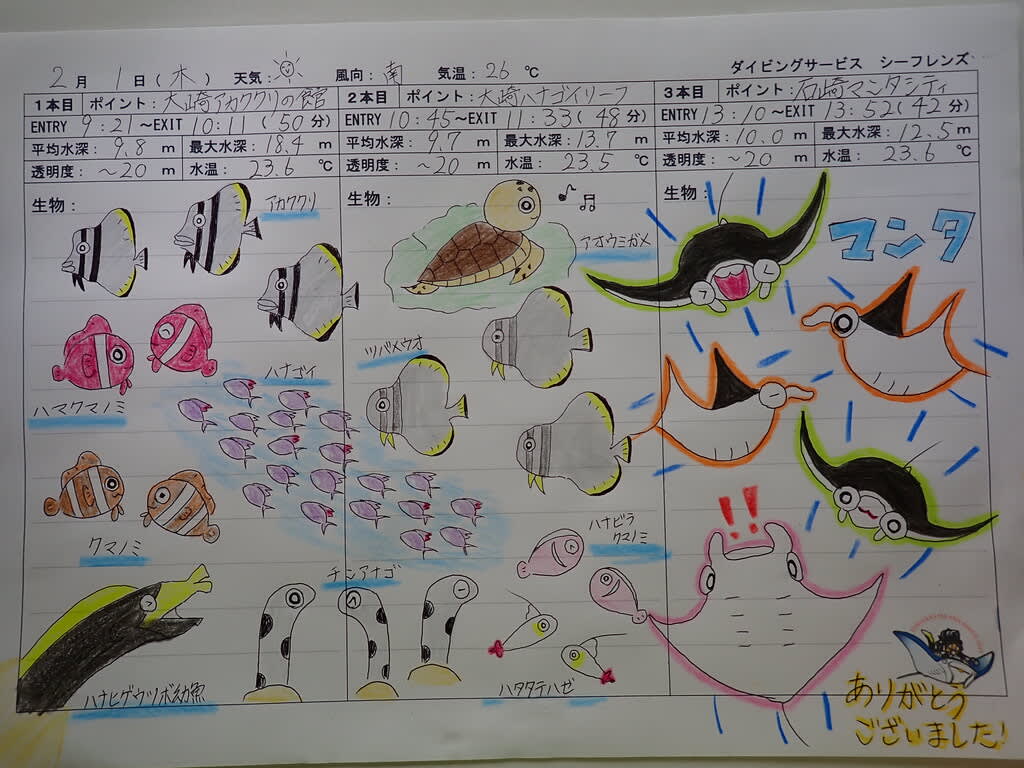 2月 1日(木) 天気: 風向:南 気温:26℃ ダイビングサービス シーフレンズ
1本目 ポイント:大崎アカククリの館
ENTRY 9:21~EXIT 10:11(50分)
平均水深: 9.8 m 最大水深: 18.4 m
透明度: ~20 m 水温: 23.6 ℃
生物:
アカククリ
ハマクマノミ
ハナゴイ
クマノミ
チンアナゴ
ハナヒゲウツボ幼魚
2本目 ポイント:大崎ハナゴイリーフ
ENTRY 10:45~EXIT 11:33(48分)
平均水深: 9.7 m 最大水深: 13.7 m
透明度: ~20 m 水温: 23.5 ℃
生物:
アオウミガメ
ツバメウオ
ハナビラ
クマノミ
ハタタテハゼ
3本目 ポイント:石崎マンタシティ
ENTRY 13:10~EXIT 13:52(42分)
平均水深: 10.0 m 最大水深: 12.5 m
透明度: ~20 m 水温: 23.6 ℃
生物:
マンタ
!!
ありがとう
ございました!